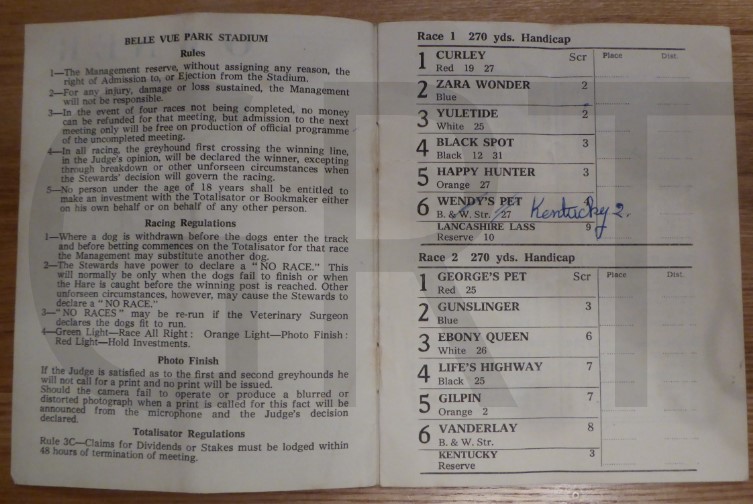 BELLE VUE PARK STADIUM
Rules
1—The Management reserve, without assigning any reason, the
right of Admission to, or Ejection from the Stadium.
2—For any injury, damage or loss sustained, the Management
will not be responsible.
3—In the event of four races not being completed, no money
can be refunded for that meeting, but admission to the next
meeting only will be free on production of official programme
of the uncompleted meeting.
4—In all racing, the greyhound first crossing the winning line,
in the Judge's opinion, will be declared the winner, excepting
through breakdown or other unforseen circumstances when
the Stewards' decision will govern the racing.
5—No person under the age of 18 years shall be entitled to
make an investment with the Totalisator or Bookmaker either
on his own behalf or on behalf of any other person.
Racing Regulations
1—Where a dog is withdrawn before the dogs enter the track
and before betting commences on the Totalisator for that race
the Management may substitute another dog.
2—The Stewards have power to declare a "NO RACE." This
will normally be only when the dogs fail to finish or when
the Hare is caught before the winning post is reached. Other
unforseen circumstances, however, may cause the Stewards to
declare a "NO RACE."
3—"NO RACES" may be re-run if the Veterinary Surgeon
declares the dogs fit to run.
4—Green Light—Race All Right: Orange Light—Photo Finish:
Red Light—Hold Investments.
Photo Finish
If the Judge is satisfied as to the first and second greyhounds he
will not call for a print and no print will be issued.
Should the camera fail to operate or produce a blurred or
distorted photograph when a print is called for this fact will be
announced from the microphone and the Judge's decision
declared.
Totalisator Regulations
Rule 3C—Claims for Dividends or Stakes must be lodged within
48 hours of termination of meeting.
Race 1 270 yds. Handicap
1 CURLEY Scr Place Dist.
Red 19 27
2 ZARA WONDER 2
Blue
3 YULETIDE 2
White 25
4 BLACK SPOT 3
Black 12 31
5 HAPPY HUNTER 3
Orange 27
6 WENDY'S PET 4
B. & W. Str. 27 Kentucky 2.
LANCASHIRE LASS 9
Reserve 10
Race 2 270 yds. Handicap
1 GEORGE'S PET Scr Place Dist.
Red 25
2 GUNSLINGER 3
Blue
3 EBONY QUEEN 6
White 26
4 LIFE'S HIGHWAY 7
Black 25
5 GILPIN 7
Orange 2
6 VANDERLAY 8
B. & W. Str.
KENTUCKY 3
Reserve